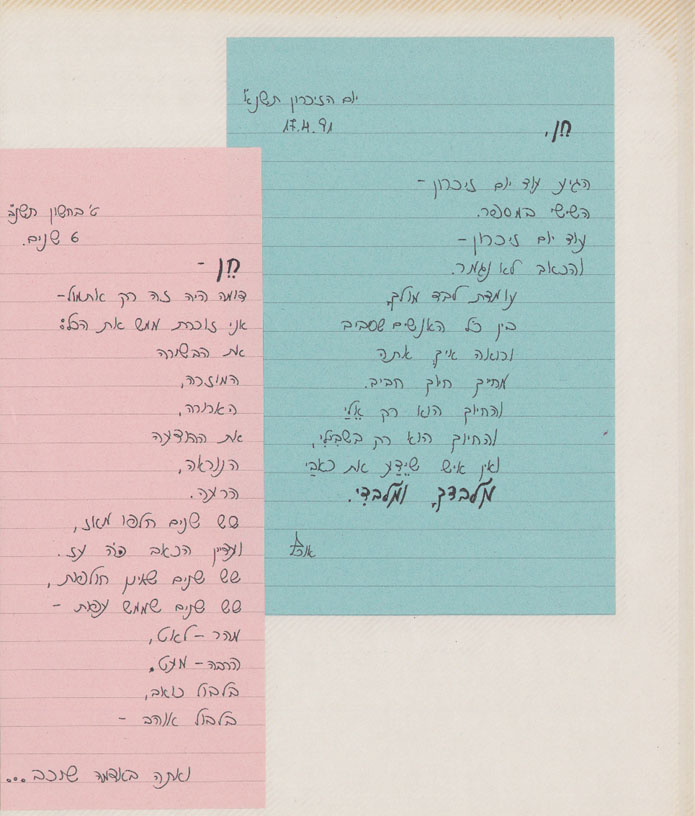 יום הזיכרון תשנ"א
17.4.91
חֵן,
הגיע עוד יום זיכרון -
השישי במספר.
עוד יום זיכרון -
והכאב לא נגמר.
עומדת לבד מולך,
בין כל האנשים שסביב
ורואה איך אתה
מחייך חיוך חביב.
והחיוך הוא רק אֵלַי
והחיוך הוא רק בשבילי,
ואין איש שֶיֵדַע את כאבַי
מלבדך, ומלבדי.
ט' בחשון תשנ"ב
6 שנים.
חֵן -
דומה היה זה רק אתמול-
אני זוכרת ממש את הכל:
את הבשורה
המוזרה,
הארורה,
את ההודעה
הנוראה,
הרעה.
שש שנים חלפו מאז,
ועדיין הכאב פה עז.
שש שנים שאינן חולפות,
שש שנים שממש עפות -
מהר-לאט,
הרבה-מעט,
בלבול כואב,
בלבול אוהב -
ואתה באדמה שוכב...